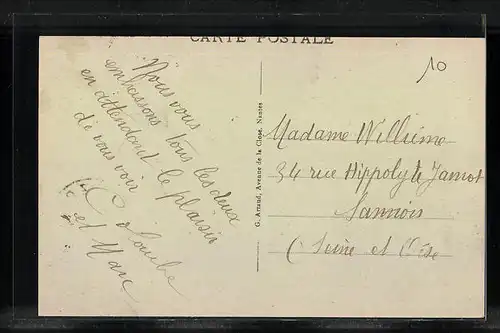 CARTE POSTALE
10
Nous vous
embrassons tous les deux
en attendant le plaisir
de vous voir
et Marc
G. Artaud, Avenue de la Close, Nantes
Madame Willième
34 rue Hippolyte Jamot
Sannois
(Seine et Oise